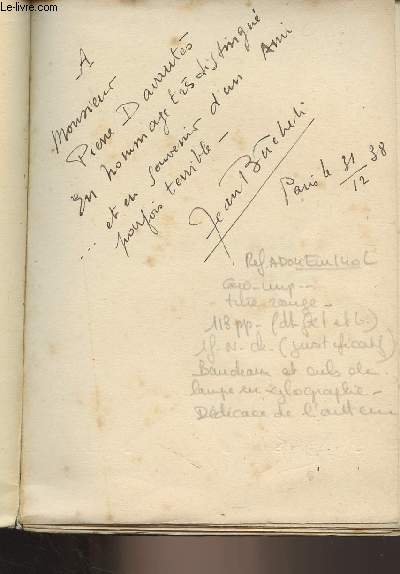 Le-Livre.com
A
Monsieur
Pierre Davautès
En hommage très distingué
... et en souvenir d'un Ami
parfois terrible –
Jean Bücheli
Paris le 31/12 38
titre rouge –
118 pp – (dt et
1f. n. ch. (justificatif)
Bandeaux et culs de
lampe en xylographie –
Dédicace de l'auteur